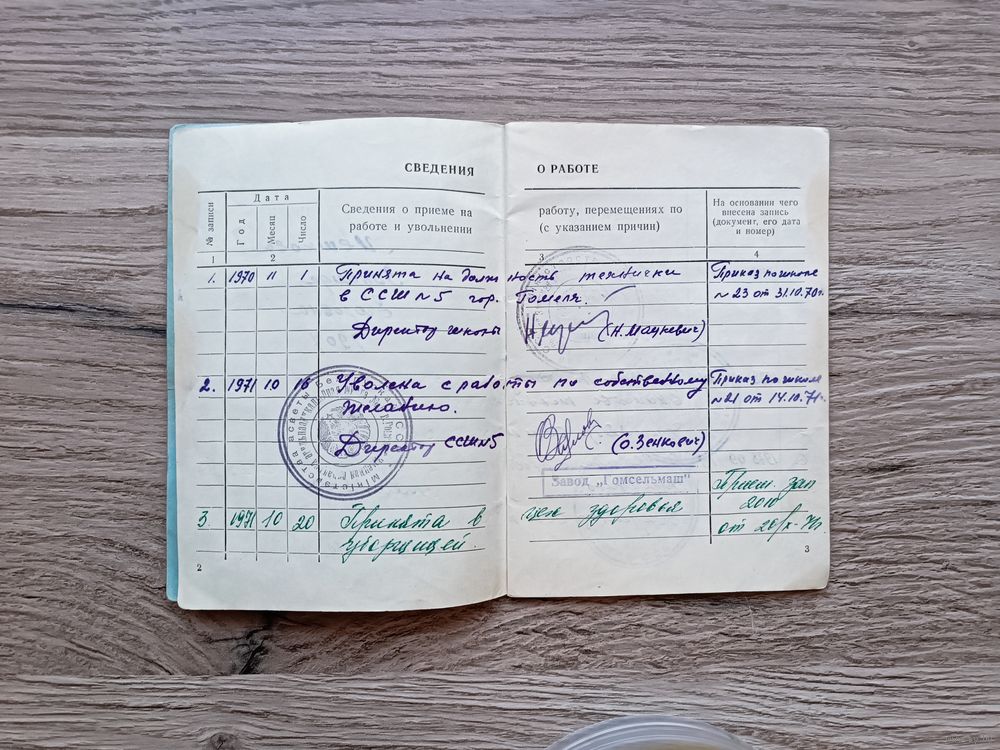 СВЕДЕНИЯ О РАБОТЕ
№ записи
Дата
Год
Месяц
Число
Сведения о приеме на работу, перемещениях по
работе и увольнении (с указанием причин)
На основании чего
внесена запись
(документ, его дата
и номер)
1 2 3 4
1. 1970 11 1 Принята на должность технички Приказ по школе
в ССШ №5 гор. Гомеля. №23 от 31.10.70г.
Директор школы (Н. Мацкевич)
2. 1971 10 16 Уволена с работы по собственному Приказ по школе
желанию. №21 от 14.10.71г.
Директор ССШ №5 (О. Зенкович)
Завод „Гомсельмаш"
3. 1971 10 20 Принята в цех здоровья
уборщицей.
2 3